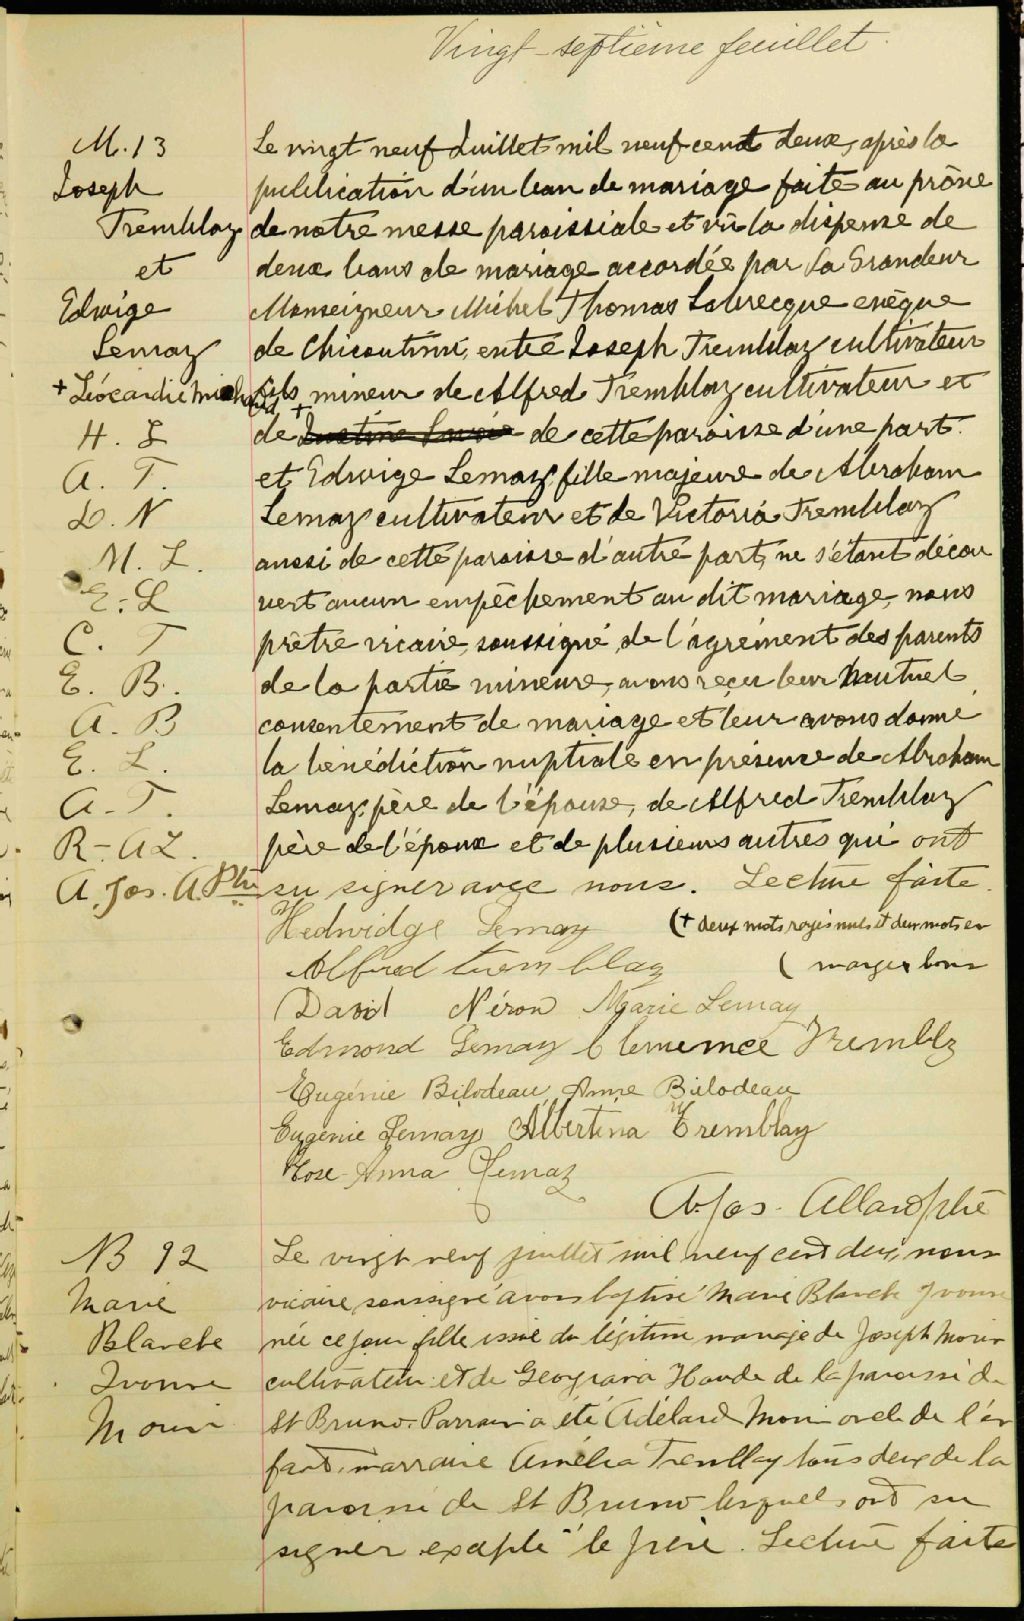 Vingt-septième feuillet.
M. 13
Joseph
Tremblay
et
Edwige
Lemay
+ Léocardie Michaud
H. L
A. T.
D. N
M. L.
E. L
C. T
E. B.
A. B
E. L.
A. T.
R-A L.
A. Jos. A. Ptre
Le vingt neuf Juillet mil neuf cent deux, après la
publication d'un ban de mariage faite au prône
de notre messe paroissiale et vu la dispense de
deux bans de mariage accordée par Sa Grandeur
Monseigneur Michel Thomas Labrecque evêque
de Chicoutimi, entre Joseph Tremblay cultivateur
fils mineur de Alfred Tremblay cultivateur et
de + de cette paroisse d'une part.
et Edwige Lemay fille majeure de Abraham
Lemay cultivateur et de Victoria Tremblay
aussi de cette paroisse d'autre part, ne s'étant décou
vert aucun empêchement au dit mariage, nous
prêtre vicaire soussigné, de l'agrément des parents
de la partie mineure, avons reçu leur mutuel
consentement de mariage et leur avons donné
la bénédiction nuptiale en présence de Abraham
Lemay, père de l'épouse, de Alfred Tremblay
père de l'époux et de plusieurs autres qui ont
su signer avec nous. Lecture faite.
Hedwidge Lemay (+ deux mots rayés nuls et deux mots en
Alfred Tremblay ( marges bons
David Néron Marie Lemay
Edmond Lemay Clemence Trembly
Eugénie Bilodeau, Anne Bilodeau
Eugénie Lemay Albertina Tremblay
Rose-Anna Lemay
A. Jos. Allard ptre
B 92
Marie
Blanche
Ivonne
Morin
Le vingt neuf juillet mil neuf cent deux, nous
vicaire soussigné avons baptisé Marie Blanche Ivonne
née ce jour fille issue du légitime mariage de Joseph Morin
cultivateur et de Georgiana Houde de la paroisse de
St Bruno. Parrain a été Adélard Morin oncle de l'en
fant, marraine Amélia Tremblay tous deux de la
paroisse de St Bruno lesquels ont su
signer excepté le père. Lecture faite